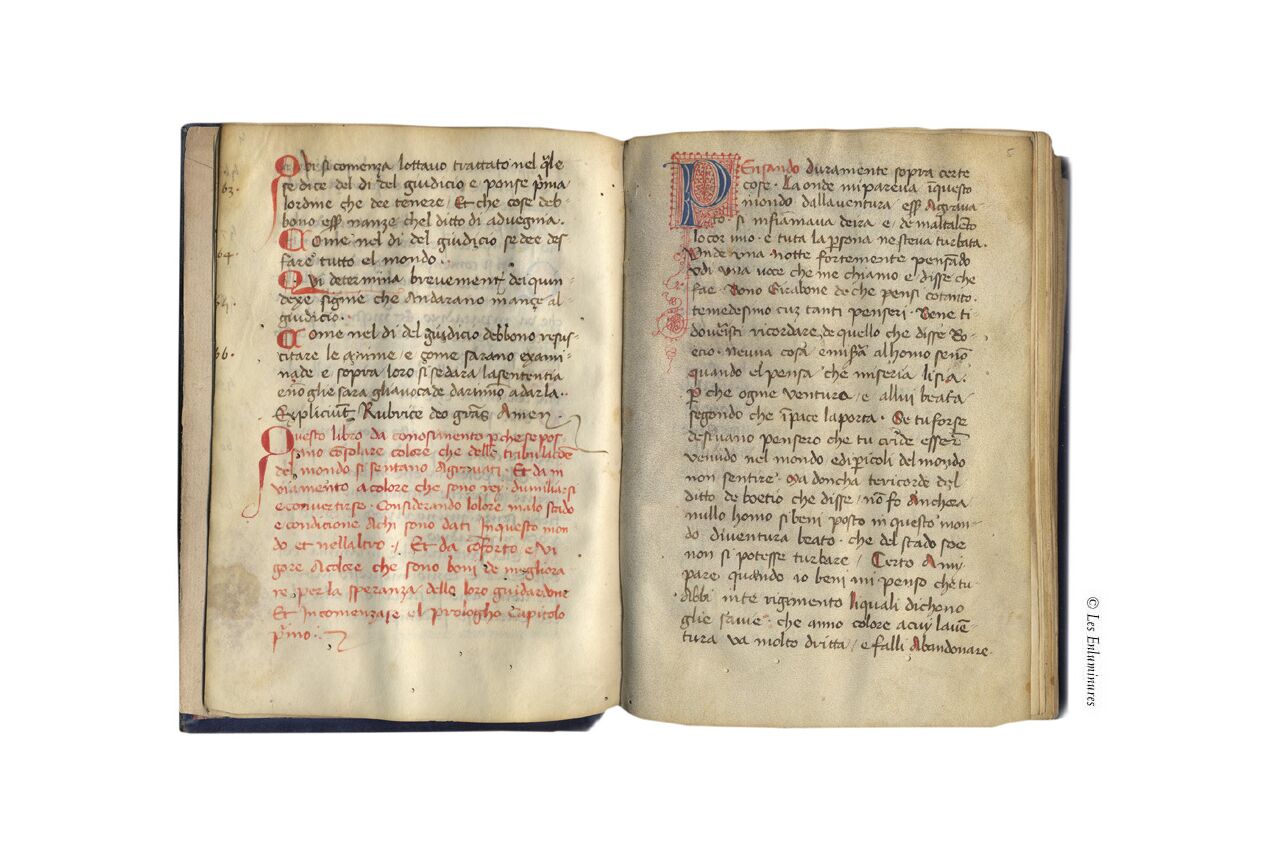 Qui si comenza lottavo trattato nel q̃le
63.
se dice del di del giudicio e ponse p̃ma
lordine che dee tenere / Et che cose deb-
bono ess̃ nanze chel ditto di advegnia.
Come nel di del giudicio se dee des
64.
fare tutto el mondo.
Qvi determina brevement̃ dei quin-
dexe signe che Andarano inançe al
giudicio.
Come nel di del giudicio debbono resus-
66.
citare le anime / e come sarano exami-
nade e sopra loro si sedara la sententia
e nõ glie sara gliavocade dar in nõ adarla.
Expliciunt̃ Rubrice deo gr̃as Amen
Questo libro da conosimento p̃che se pos-
sino cõsolare colore che delle tribulacõe
del mondo si sentano Agravati. Et da in
viamento a colore che sono rey. dumiliarsi
e convertirse. Considerando lolore malo stado
e condicione Achi sono dati In questo mon
do et nellaltro /. Et da cõforto e vi
gore A colore che sono boni de megliora
re per la speranza delle loro guidardone
Et Incomenzase el prologho Capitolo
p̃mo.
5
PEnsando duramente sopra certe
cose. La onde mi pareva ĩ questo
mondo dallaventura ess̃ Agrava
to. si infiamava deira e de maltalẽto
locor mio. e tuta la p̃sona ne steva turbata.
Vnde vna notte fortemente pensãdo
vdi vna voce che me chiamo e disse che
fae. Bono Girabone de che pensi cotanto.
temedesimo cuz tanti penseri. Bene ti
dover̃sti ricordare de quello che disse Bo-
ecio. neuna cosa e missa al homo se nõ
quando el pensa che miseria li sia.
p̃ che ogne ventura / e allui beata
segondo che ĩ pace la porta. Se tu forse
desi vano pensero che tu cride esser̃
venudo nel mondo e di p̃icoli del mondo
non sentire. Ma doncha te ricorde del
ditto de boetio che disse / nõ fo Anchora
nullo homo si beni posto in questo mon-
do diventura beato. che del stado soe
non si potesse turbare / Certo A mi
pare quando io beni mi penso che tu
Abbi in te rigimento li quali dichono
glie savie. che anno colore acui lavẽ-
tura va molto dritta / e falli Abandonare
© Les Enluminures